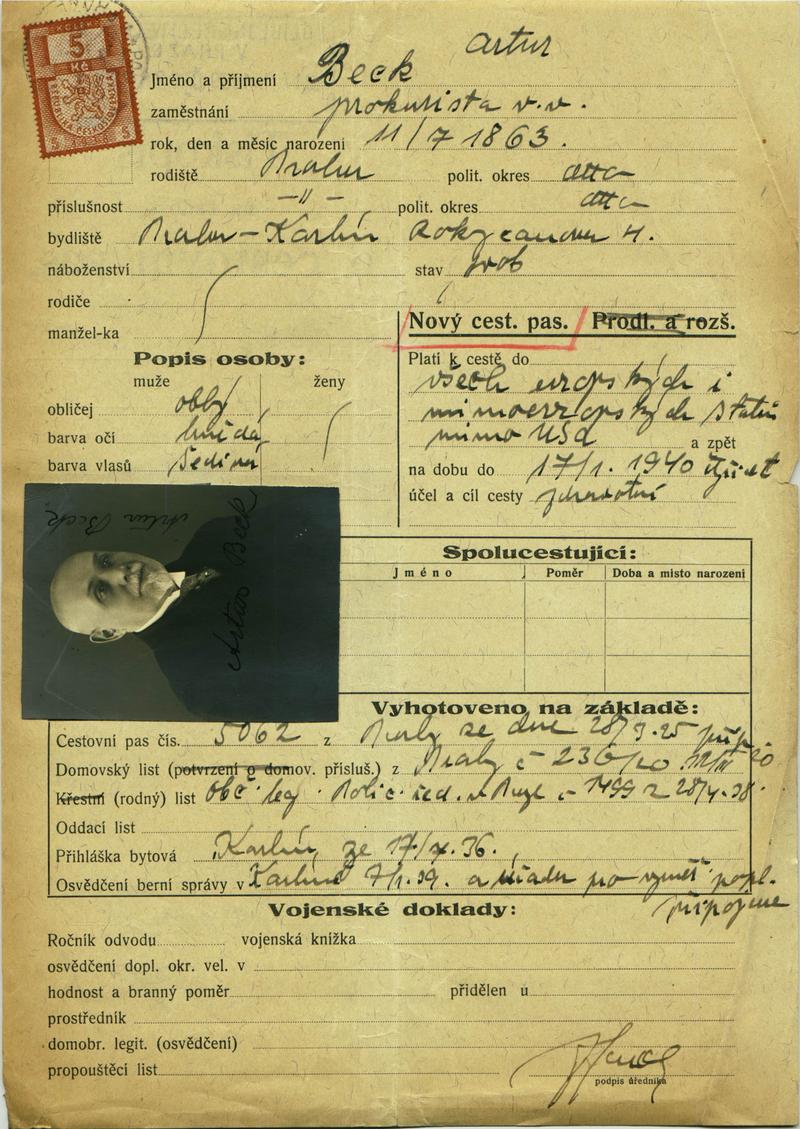 5
Kč
5 5
Artur
Jméno a příjmení Beck
zaměstnání prokurista v.v.
rok, den a měsíc narození 11/7 1863.
rodiště Praha polit. okres dtto
příslušnost –〃– polit. okres dtto
bydliště Praha-Karlín Rokycanova 4.
náboženství stav svob
rodiče
manžel-ka
Nový cest. pas. Prodl. a rozš.
Popis osoby:
muže ženy
obličej
barva očí hnědá
barva vlasů šedivá
Platí k cestě do
všech evropských i
mimoevropských států
mimo USA a zpět
na dobu do 17/1. 1940
účel a cíl cesty zdravotní
Artur Beck
Artur Beck
Spolucestující:
Jméno Poměr Doba a místo narození
Vyhotoveno na základě:
Cestovní pas čís. 5062 z Prahy ze dne 28/9.25
Domovský list (potvrzení o domov. přísluš.) z Prahy č 236/20
Křestní (rodný) list Obč. leg. Polic. řed. v Praze č 1499 z 28/4.38.
Oddací list
Přihláška bytová Karlín, ze 17/X.36.
Osvědčení berní správy v Karlíně 7/1.39. a úřadu pro vyměř. popl.
připojeno
Vojenské doklady:
Ročník odvodu vojenská knížka
osvědčení dopl. okr. vel. v
hodnost a branný poměr přidělen u
prostředník
domobr. legit. (osvědčení)
propouštěcí list
podpis úředníka